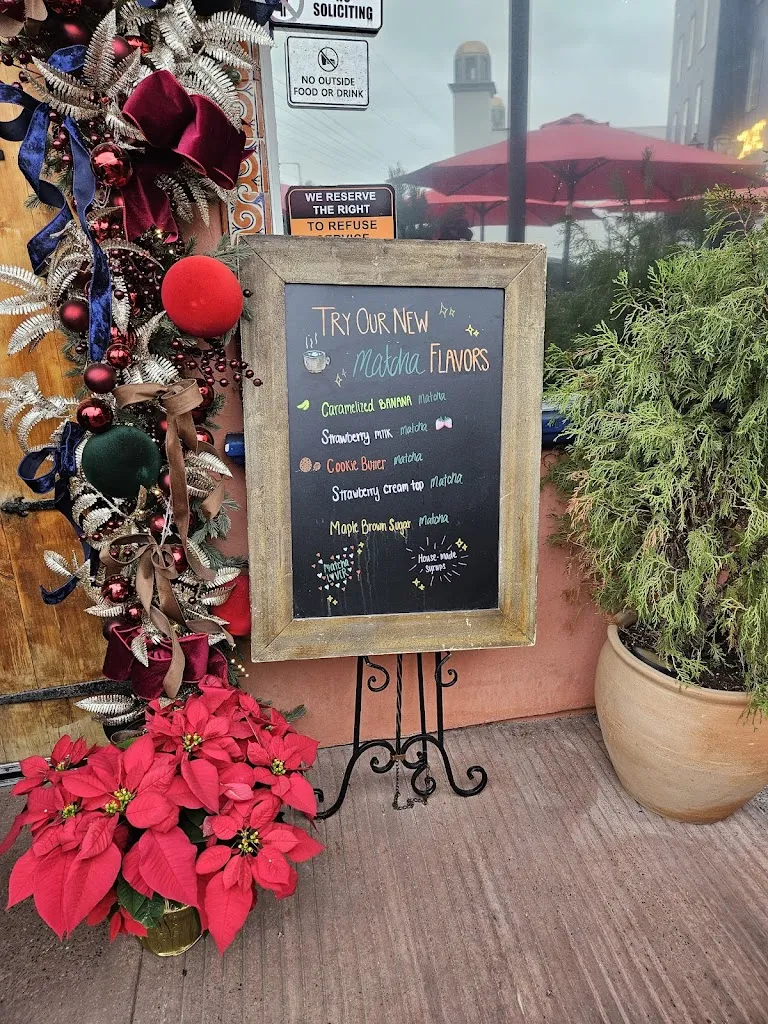 SOLICITING
NO OUTSIDE
FOOD OR DRINK
WE RESERVE
THE RIGHT
TO REFUSE
SERVICE
TRY OUR NEW
matcha FLAVORS
Caramelized BANANA matcha
Strawberry milk matcha
Cookie Butter matcha
Strawberry cream top matcha
Maple Brown Sugar matcha
Matcha
LOVER
House-made
syrups